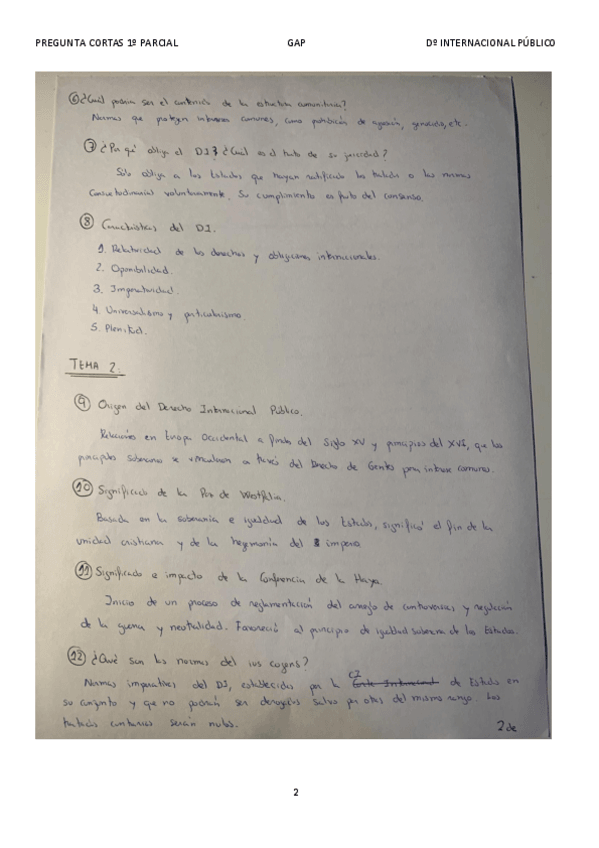 PREGUNTA CORTAS 1º PARCIAL GAP Dº INTERNACIONAL PÚBLICO
⑥ ¿Cuál podría ser el contenido de la estructura comunitaria?
Normas que protejen intereses comunes, como prohibición de agresión, genocidio, etc.
⑦ ¿Por qué obliga el D.I? ¿Cuál es el fruto de su juricidad?
Sólo obliga a los Estados que hayan ratificado los tratados o las normas
consuetudinarias voluntariamente. Su cumplimiento es fruto del consenso.
⑧ Características del D.I.
1. Relatividad de los derechos y obligaciones internacionales.
2. Oponibilidad.
3. Imperatividad.
4. Universalismo y particularismo
5. Plenitud.
TEMA 2:
⑨ Origen del Derecho Internacional Público.
Relaciones en Europa Occidental a finales del Siglo XV y principios del XVI, que los
principales soberanos se vincularon a través del Derecho de Gentes para intereses comunes.
⑩ Significado de la Paz de Westfalia.
Basada en la soberanía e igualdad de los Estados, significó el fin de la
unidad cristiana y de la hegemonía del imperio
⑪ Significado e impacto de la Conferencia de la Haya.
Inicio de un proceso de reglamentación del arreglo de controversias y regulación
de la guerra y neutralidad. Favoreció al principio de igualdad soberana de los Estados.
⑫ ¿Qué son las normas del ius cogens?
Normas imperativas del DI, establecidas por la CI de Estados en
su conjunto y que no podrán ser derogadas salvo por otras del mismo rango. Los
tratados contrarios serán nulos.
2 de
2